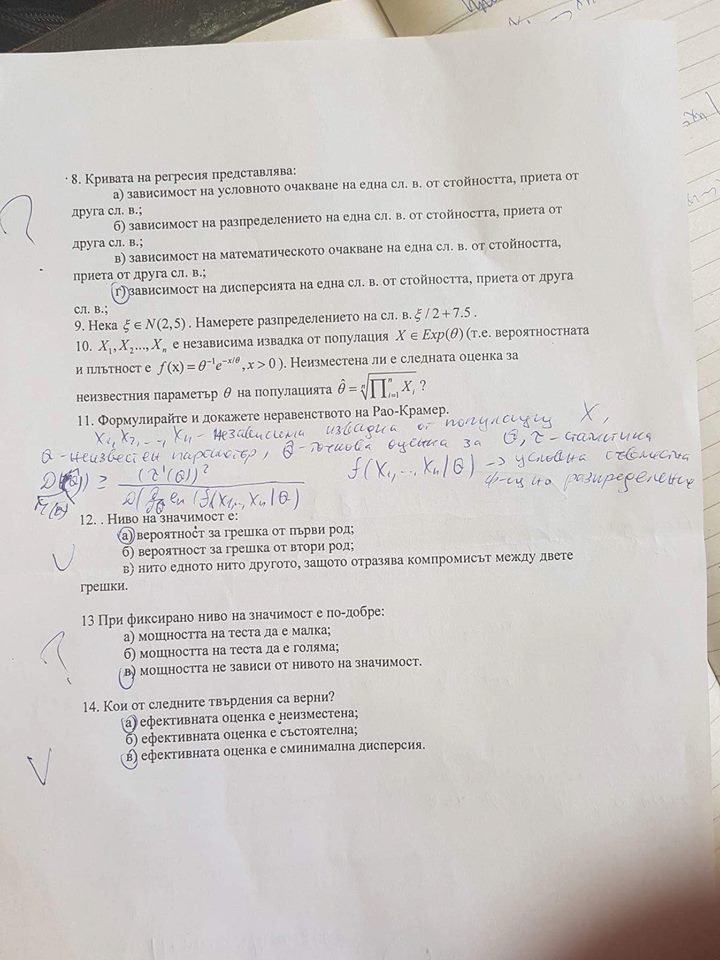 8. Кривата на регресия представлява:
а) зависимост на условното очакване на една сл. в. от стойността, приета от
друга сл. в.;
б) зависимост на разпределението на една сл. в. от стойността, приета от
друга сл. в.;
в) зависимост на математическото очакване на една сл. в. от стойността,
приета от друга сл. в.;
г) зависимост на дисперсията на една сл. в. от стойността, приета от друга
сл. в.;
9. Нека ξ ∈ N(2,5). Намерете разпределението на сл. в. ξ / 2 + 7.5 .
10. X₁, X₂..., Xₙ е независима извадка от популация X ∈ Exp(θ) (т.е. вероятностната
и плътност е f(x) = θ⁻¹e^(−x/θ), x > 0 ). Неизместена ли е следната оценка за
неизвестния параметър θ на популацията θ̂ = ⁿ√(∏ᵢ₌₁ⁿ Xᵢ) ?
11. Формулирайте и докажете неравенството на Рао-Крамер.
X₁, X₂, ..., Xₙ - независима извадка от популация X,
θ - неизвестен параметър, θ̂ - точкова оценка за θ, τ - статистика
≥ (τ'(θ))² f(X₁, ..., Xₙ|θ) → условна съвместна
12. . Ниво на значимост е:
а) вероятност за грешка от първи род;
б) вероятност за грешка от втори род;
в) нито едното нито другото, защото отразява компромисът между двете
грешки.
13 При фиксирано ниво на значимост е по-добре:
а) мощността на теста да е малка;
б) мощността на теста да е голяма;
в) мощността не зависи от нивото на значимост.
14. Кои от следните твърдения са верни?
а) ефективната оценка е неизместена;
б) ефективната оценка е състоятелна;
в) ефективната оценка е сминимална дисперсия.